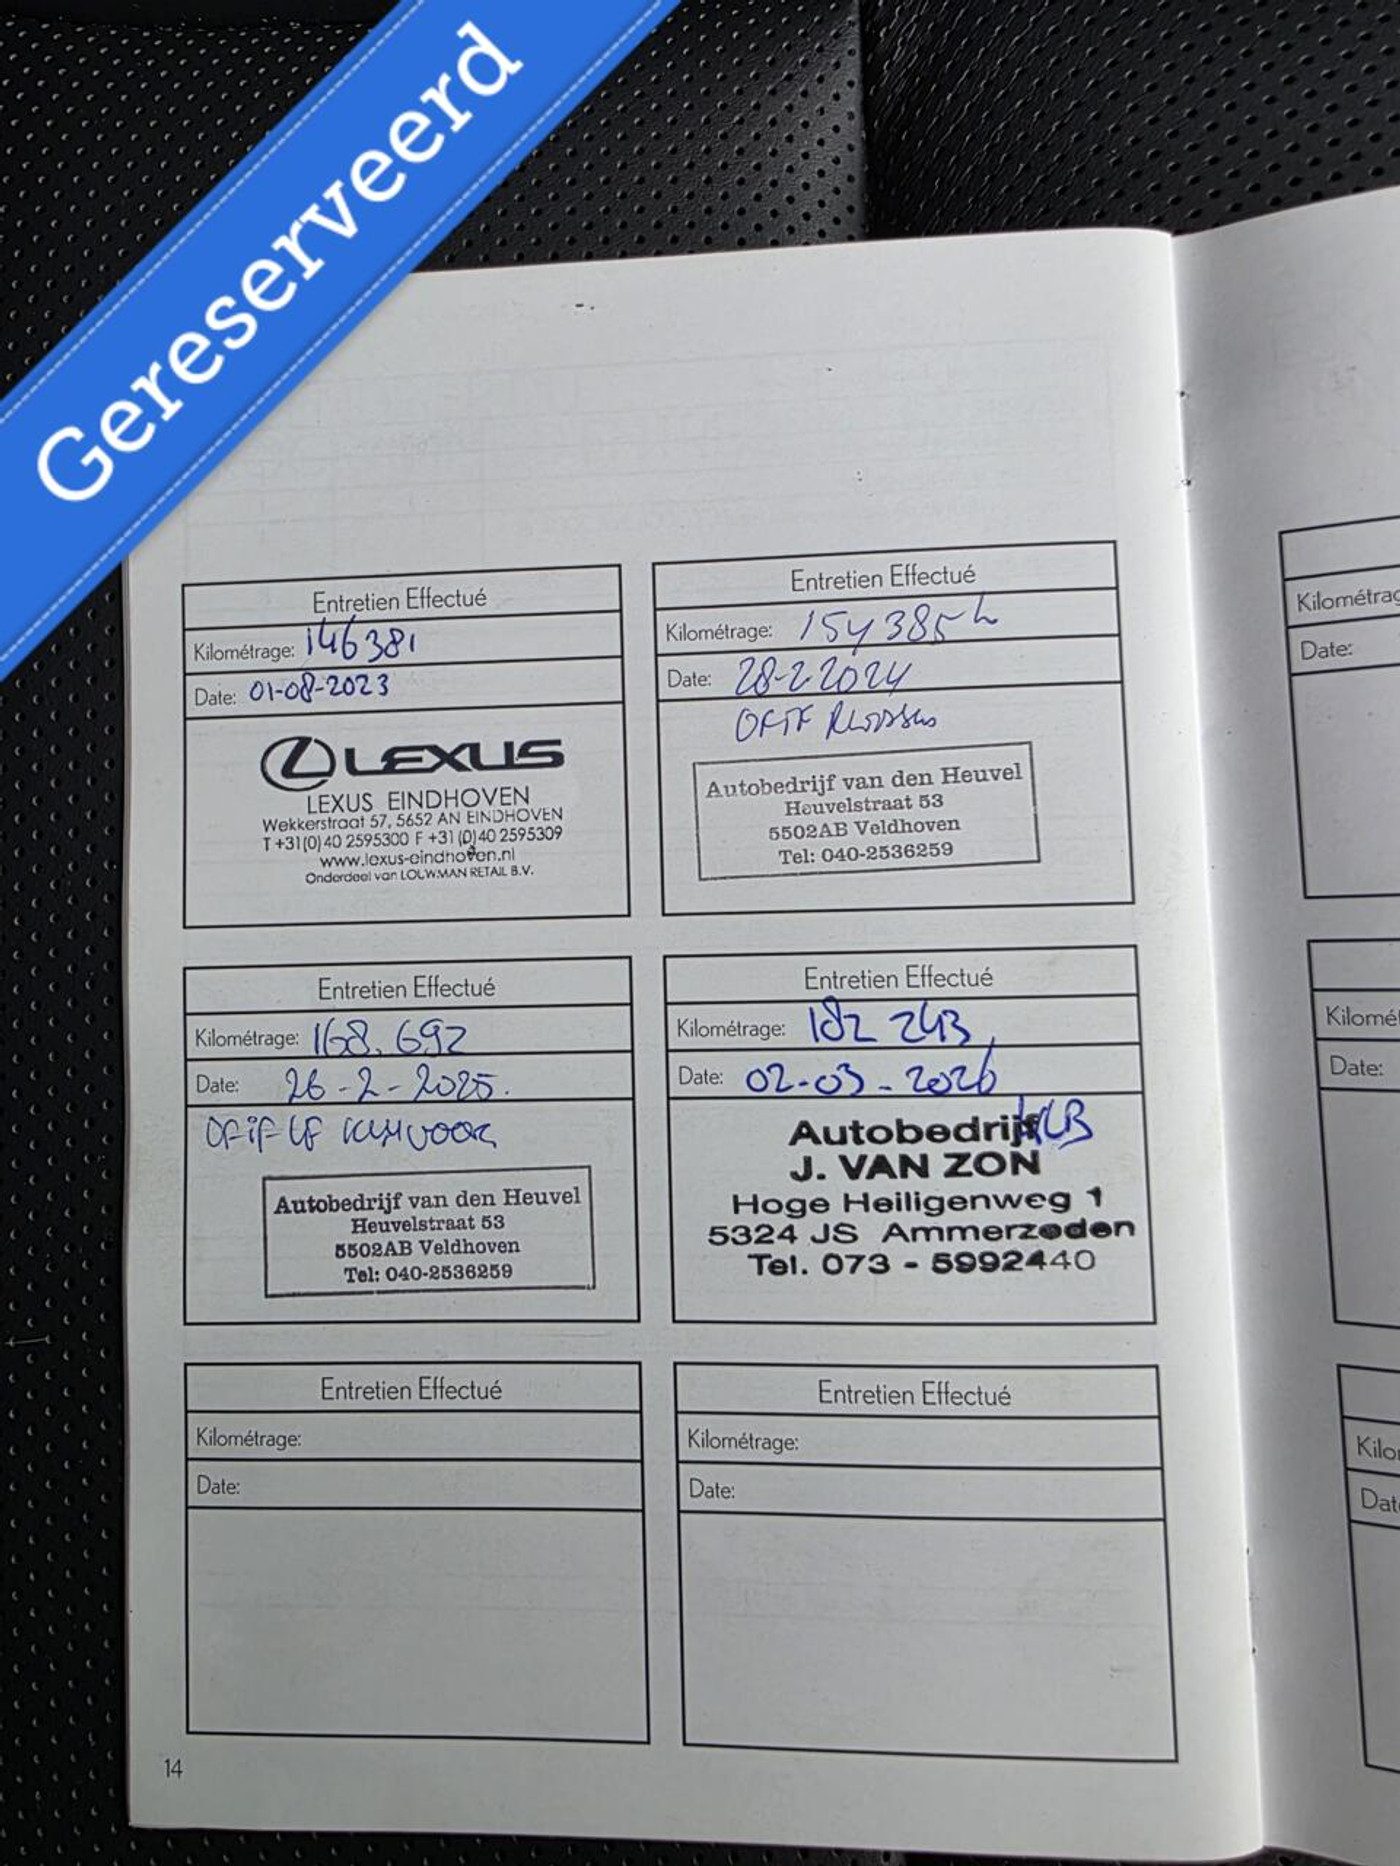 Gereserveerd
Entretien Effectué
Kilométrage: 146381
Date: 01-08-2023
LEXUS
LEXUS EINDHOVEN
Wekkerstraat 57, 5652 AN EINDHOVEN
T +31(0)40 2595300 F +31(0)40 2595309
www.lexus-eindhoven.nl
Onderdeel van LOUWMAN RETAIL B.V.
Entretien Effectué
Kilométrage: 154385
Date: 28-2-2024
Autobedrijf van den Heuvel
Heuvelstraat 53
5502AB Veldhoven
Tel: 040-2536259
Entretien Effectué
Kilométrage: 168.692
Date: 26-2-2025.
Autobedrijf van den Heuvel
Heuvelstraat 53
5502AB Veldhoven
Tel: 040-2536259
Entretien Effectué
Kilométrage: 182 243
Date: 02-03-2026
Autobedrijf
J. VAN ZON
Hoge Heiligenweg 1
5324 JS Ammerzoden
Tel. 073 - 5992440
Entretien Effectué
Kilométrage:
Date:
Entretien Effectué
Kilométrage:
Date:
14
Kilométrag
Date:
Kilomét
Date:
Kilo
Dat